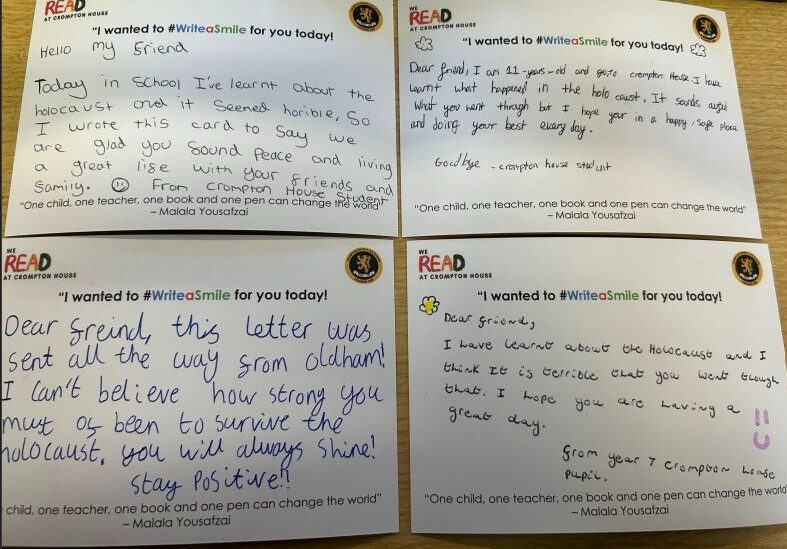 READ
AT CROMPTON HOUSE
"I wanted to #WriteaSmile for you today!
Hello my friend
Today in school I've learnt about the
holocaust and it seemed horrible, so
I wrote this card to say we
are glad you sound peace and living
a great life with your friends and
family. From Crompton House student
"One child, one teacher, one book and one pen can change the world"
– Malala Yousafzai
WE
READ
AT CROMPTON HOUSE
"I wanted to #WriteaSmile for you today!
Dear friend, I am 11-years-old and go to crompton House. I have
learnt what happened in the holo caust. It sounds awful
what you went through but I hope your in a happy, safe place
and doing your best every day.
Goodbye - crompton house student
"One child, one teacher, one book and one pen can change the world"
– Malala Yousafzai
WE
READ
AT CROMPTON HOUSE
"I wanted to #WriteaSmile for you today!
Dear freind, this letter was
sent all the way from oldham!
I can't believe how strong you
must of been to survive the
holocaust, you will always shine!
stay positive!!
child, one teacher, one book and one pen can change the world"
– Malala Yousafzai
WE
READ
AT CROMPTON HOUSE
"I wanted to #WriteaSmile for you today!
Dear friend,
I have learnt about the Holocaust and I
think It is terrible that you went though
that. I hope you are having a
great day.
from year 7 crompton house
pupil.
"One child, one teacher, one book and one pen can change the world
– Malala Yousafzai